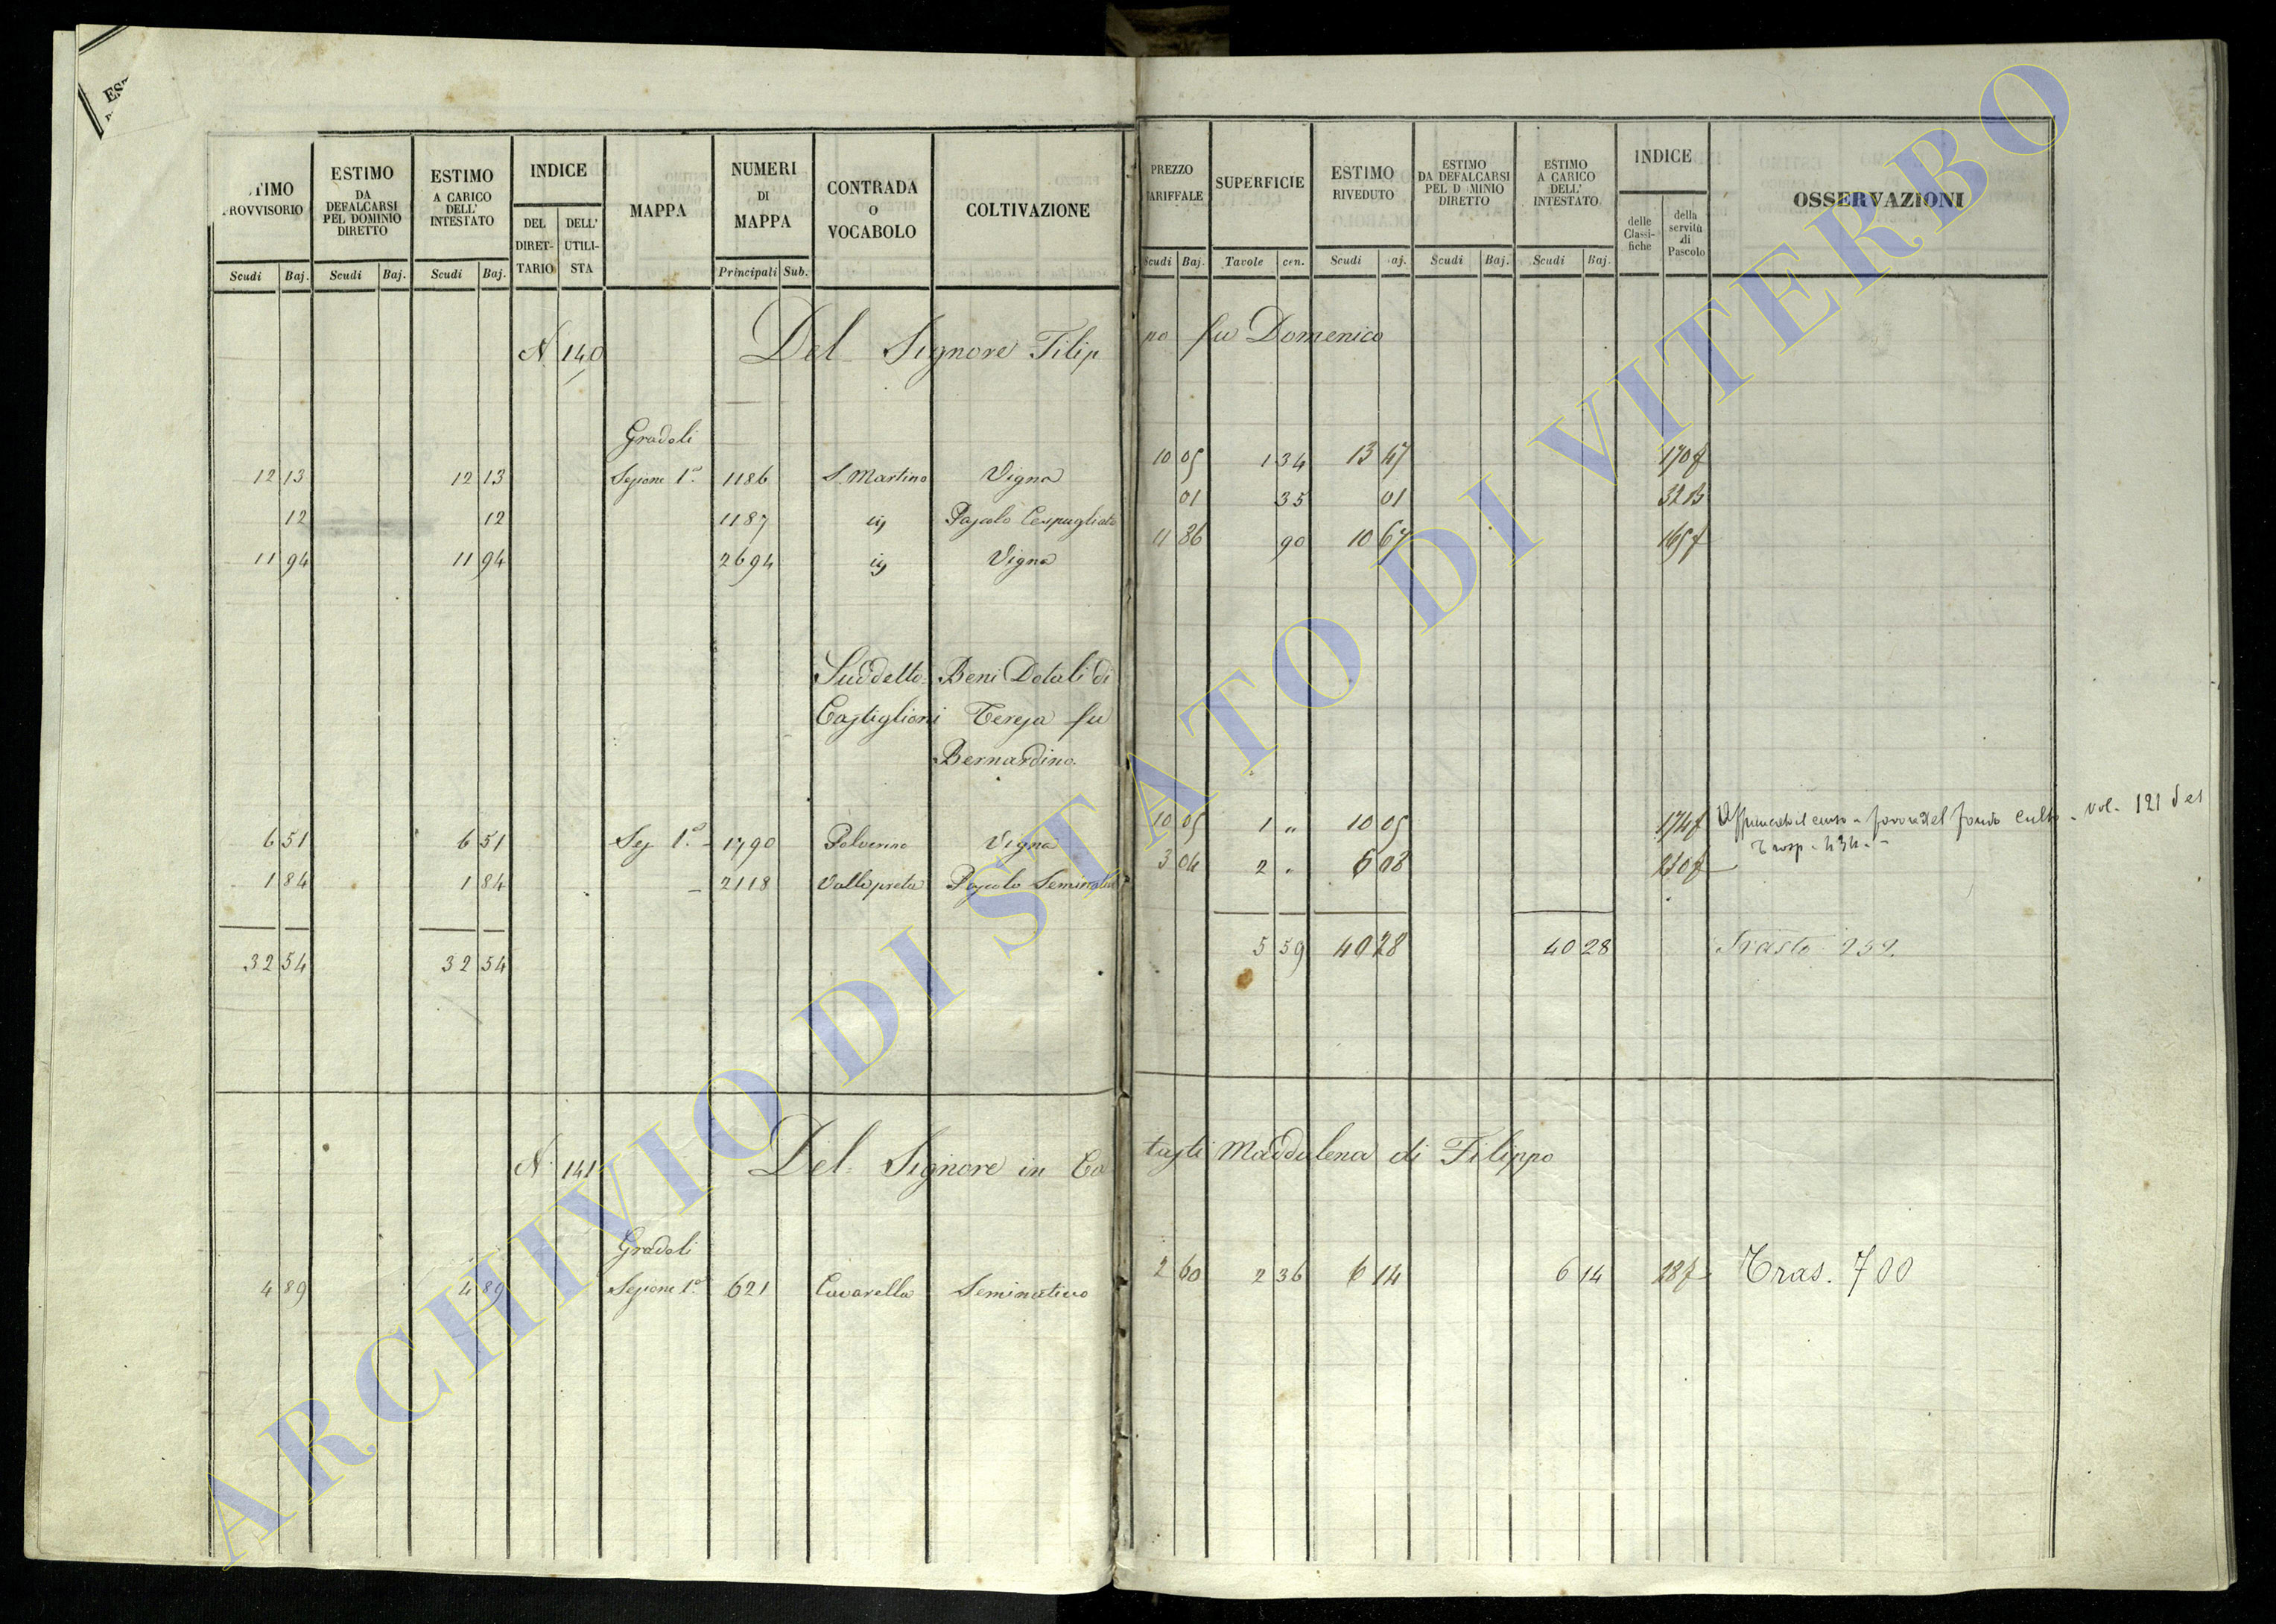 ES
TIMO
ROVVISORIO
ESTIMO
DA
DEFALCARSI
PEL DOMINIO
DIRETTO
ESTIMO
A CARICO
DELL'
INTESTATO
INDICE
DEL
DIRET-
TARIO
DELL'
UTILI-
STA
MAPPA
NUMERI
DI
MAPPA
CONTRADA
O
VOCABOLO
COLTIVAZIONE
PREZZO
TARIFFALE
SUPERFICIE
ESTIMO
RIVEDUTO
ESTIMO
DA DEFALCARSI
PEL D MINIO
DIRETTO
ESTIMO
A CARICO
DELL'
INTESTATO
INDICE
delle
Classi-
fiche
della
servitù
di
Pascolo
OSSERVAZIONI
Scudi Baj. Scudi Baj. Scudi Baj. Principali Sub. Scudi Baj. Tavole cen. Scudi aj. Scudi Baj. Scudi Baj.
N. 140 Del Signore Filip po fu Domenico
Gradoli
12 13 12 13 Sezione 1a. 1186 S. Martino Vigna 10 05 1 34 13 47 170 f
12 12 1187 id Pascolo Cespugliato 01 35 01 32 B
11 94 11 94 2694 id Vigna 11 86 90 10 67 165 f
Suddetto Beni Dotali di
Castiglioni Teresa fu
Bernardino
6 51 6 51 Sez 1a. 1790 Vigna 10 05 1 " 10 05 174 f favore del fondo culto - vol. 121 del
Trasp. 434
1 84 1 84 2118 Pascolo Seminativo 3 04 2 " 6 08 230 f
32 54 32 54 5 59 40 28 40 28 Trasto 252
N. 141 Del Signore in Ca tasti Maddalena di Filippo
Gradoli
4 89 4 89 Sezione 1a. 621 Cavarella Seminativo 2 60 2 36 6 14 6 14 287 Tras. 700
ARCHIVIO DI STATO DI VITERBO